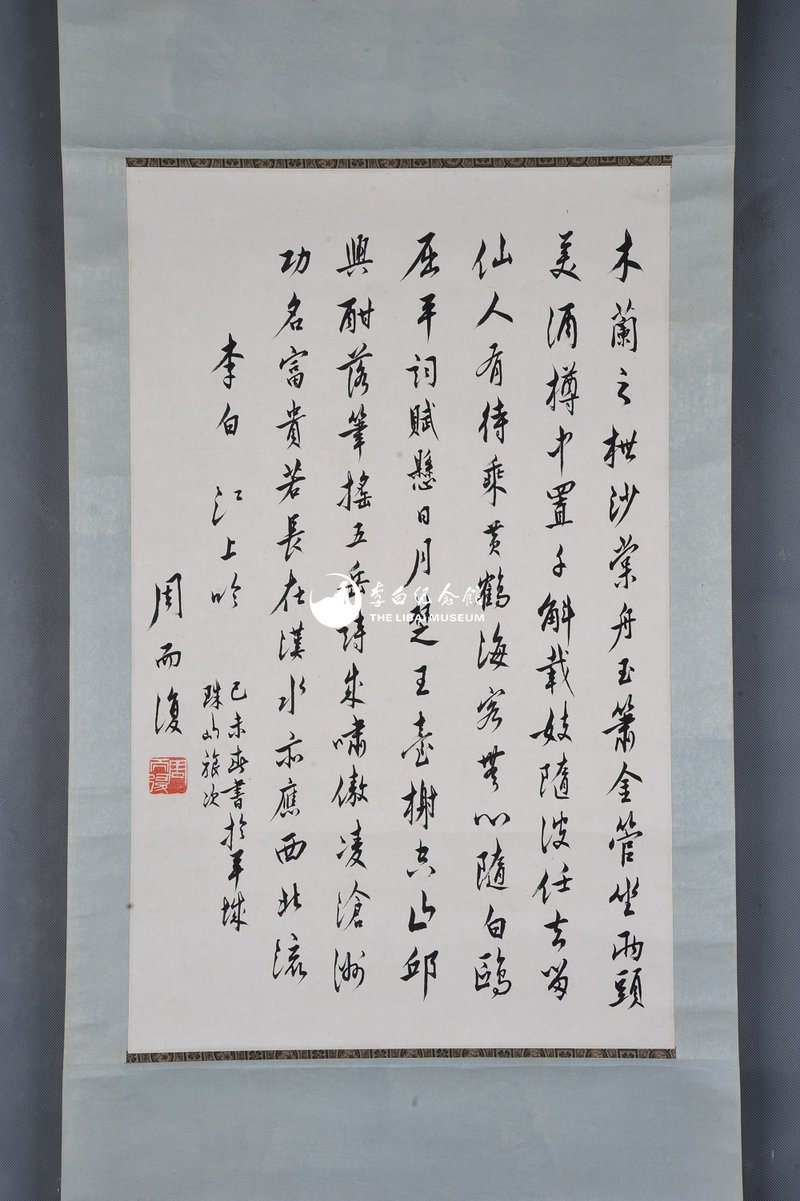 木蘭之枻沙棠舟玉簫金管坐兩頭
美酒樽中置千斛載妓隨波任去留
仙人有待乘黃鶴海客無心隨白鷗
屈平詞賦懸日月楚王臺榭空山邱
興酣落筆搖五岳詩成嘯傲凌滄洲
功名富貴若長在漢水亦應西北流
李白 江上吟
己未春書於羊城
珠島旅次
周而復
周而復
李白纪念馆
THE LIBAI MUSEUM